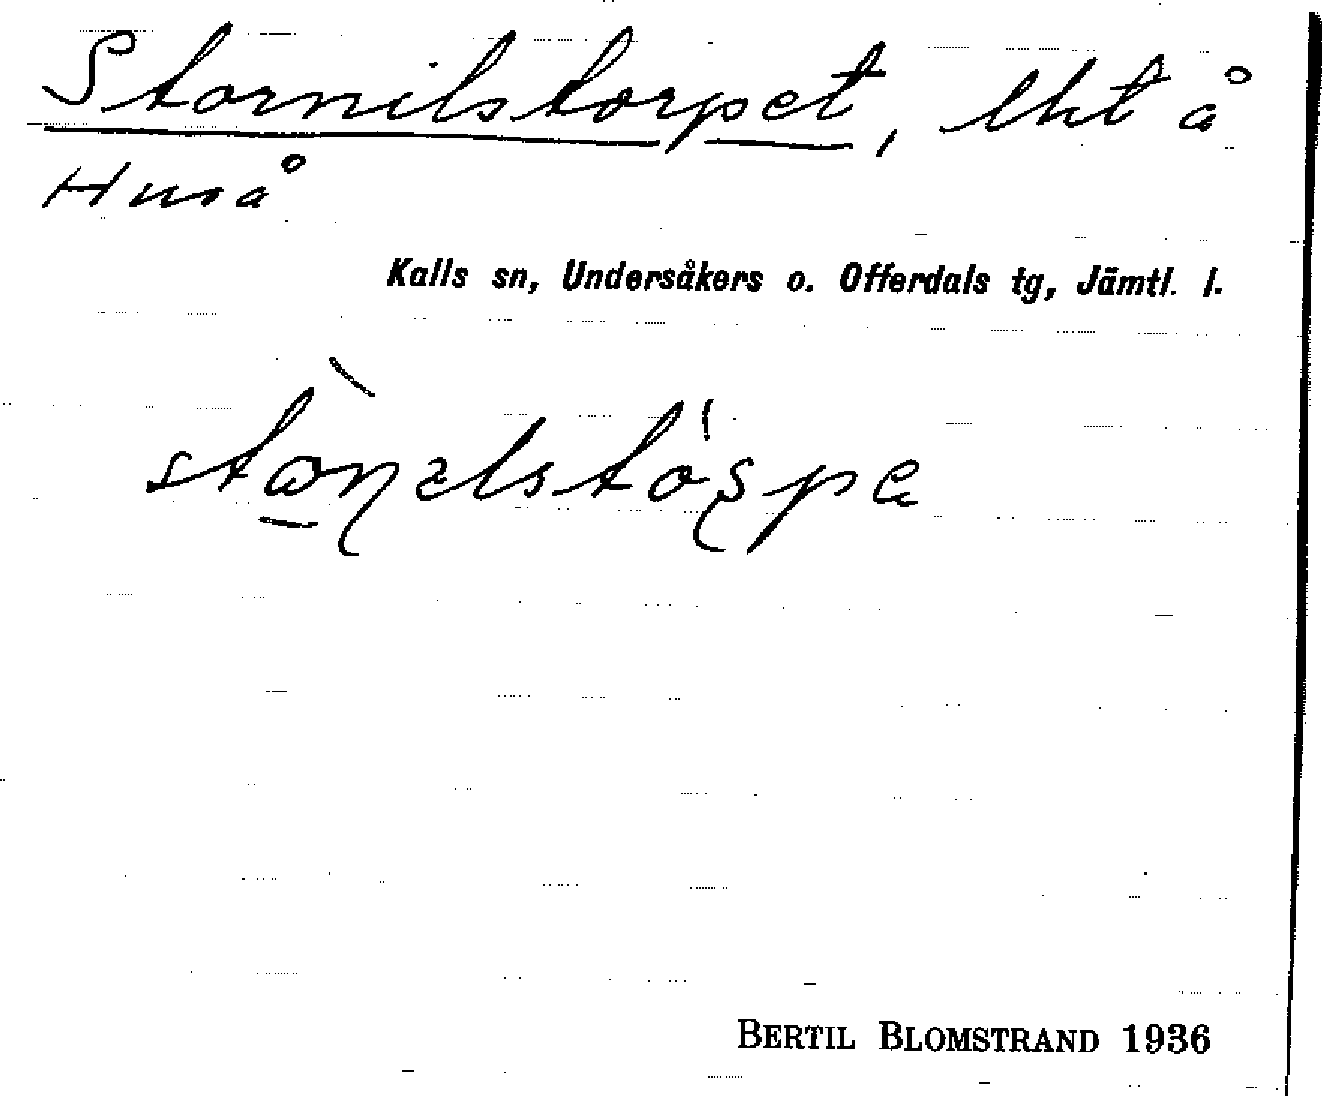 Stornilstorpet, lht å
Huså
Kalls sn, Undersåkers o. Offerdals tg, Jämtl. l.
BERTIL BLOMSTRAND 1936